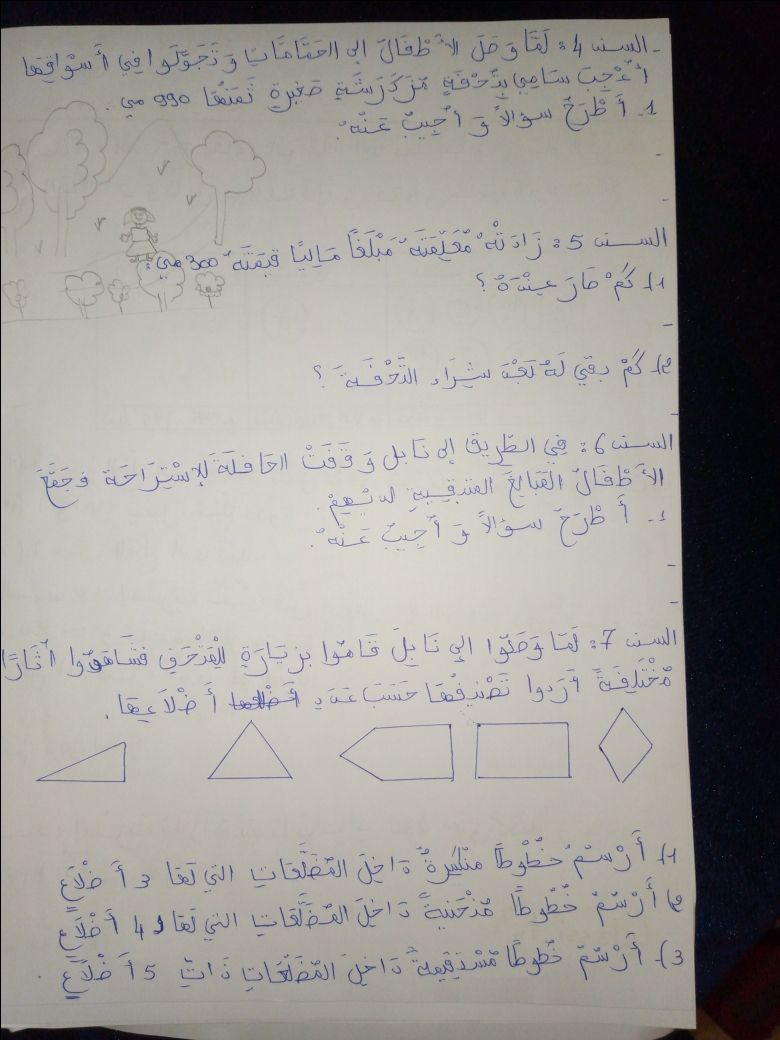 - السند 4: لَمَّا وَصَلَ الأَطْفَالُ إلى الحَمَّامَاتِ وَتَجَوَّلُوا فِي أَسْوَاقِهَا
أُعْجِبَ سَامِي بِتُحْفَةٍ مُزَرْكَشَةٍ صَغِيرَةٍ ثَمَنُهَا 990 مي.
1. أَطْرَحُ سؤالاً وَ أُجِيبُ عَنْهُ.
-
-
السند 5: زَادَتْهُ مُعَلِّمَتُهُ مَبْلَغًا مَالِيًّا قِيمَتُهُ 300 مي:
1) كَمْ صَارَ عِنْدَهُ؟
-
2) كَمْ بقي لَهُ بَعْدَ شِرَاءِ التُّحْفَةِ؟
-
السند 6: فِي الطَّرِيقِ إلى نَابل وَقَفَتْ الحَافِلَةُ لِلإسْتِرَاحَة فجَمَّعَ
الأَطْفَالُ المَبَالِغَ المتبقية لديْهِمْ.
1. أَطْرَحُ سؤالاً وَ أُجِيبُ عَنْهُ.
-
-
السند 7: لَمَّا وَصَلُوا إلى نَابلَ قَامُوا بِزِيَارَةٍ لِلْمُتْحَفِ فشَاهَدُوا آثَارًا
مُخْتَلِفَةً أرَدوا تَصْنِيفُهَا حَسَبَ عَدَدِ أَضْلاَعِهَا.
1) أَرْسُمُ خُطُوطًا منْكَسِرَةً دَاخِلَ المُضَلَّعَاتِ التي لَهَا 3 أَضْلاَعٍ
2) أَرْسُمُ خُطُوطًا مُنْحَنِيَةً دَاخِلَ المُضَلَّعَاتِ التي لَهَا 4 أَضْلاَعٍ
3)- أَرْسُمُ خُطُوطًا مُسْتَقِيمَةً دَاخِلَ المُضَلَّعَاتِ ذَاتِ 5 أَضْلاَعٍ.